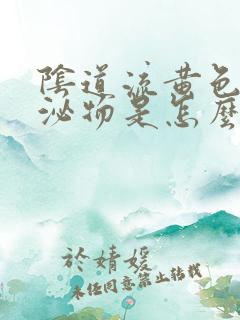 陰道流黃色
泌物是怎麼
於婧媛
未經同意禁止轉載